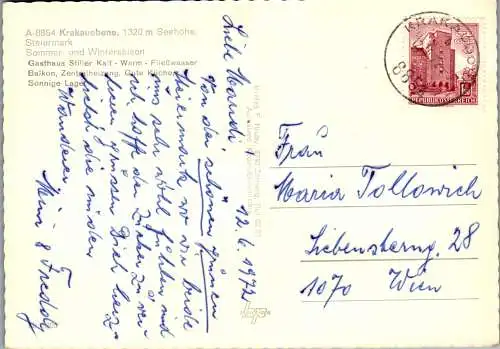 A-8854 Krakauebene, 1320 m Seehöhe,
Steiermark
Sommer- und Wintersaison
Gasthaus Stiller Kalt - Warm - Fließwasser
Balkon, Zentralheizung, Gute Küche,
Sonnige Lage
Liebe Mariedi! 12.6.1972
Von der schönen grünen
Steiermark wo wir beide
uns sehr wohl fühlen und
ich hoffe den Zucker zu ver-
lieren grüßen Dich herz-
lichst die müden
Wanderer
Mimi & Fredolf
KRAKAUDORF
885
REPUBLIK ÖSTERREICH
Frau
Maria Tollowich
Liebensterng. 28
1070 Wien